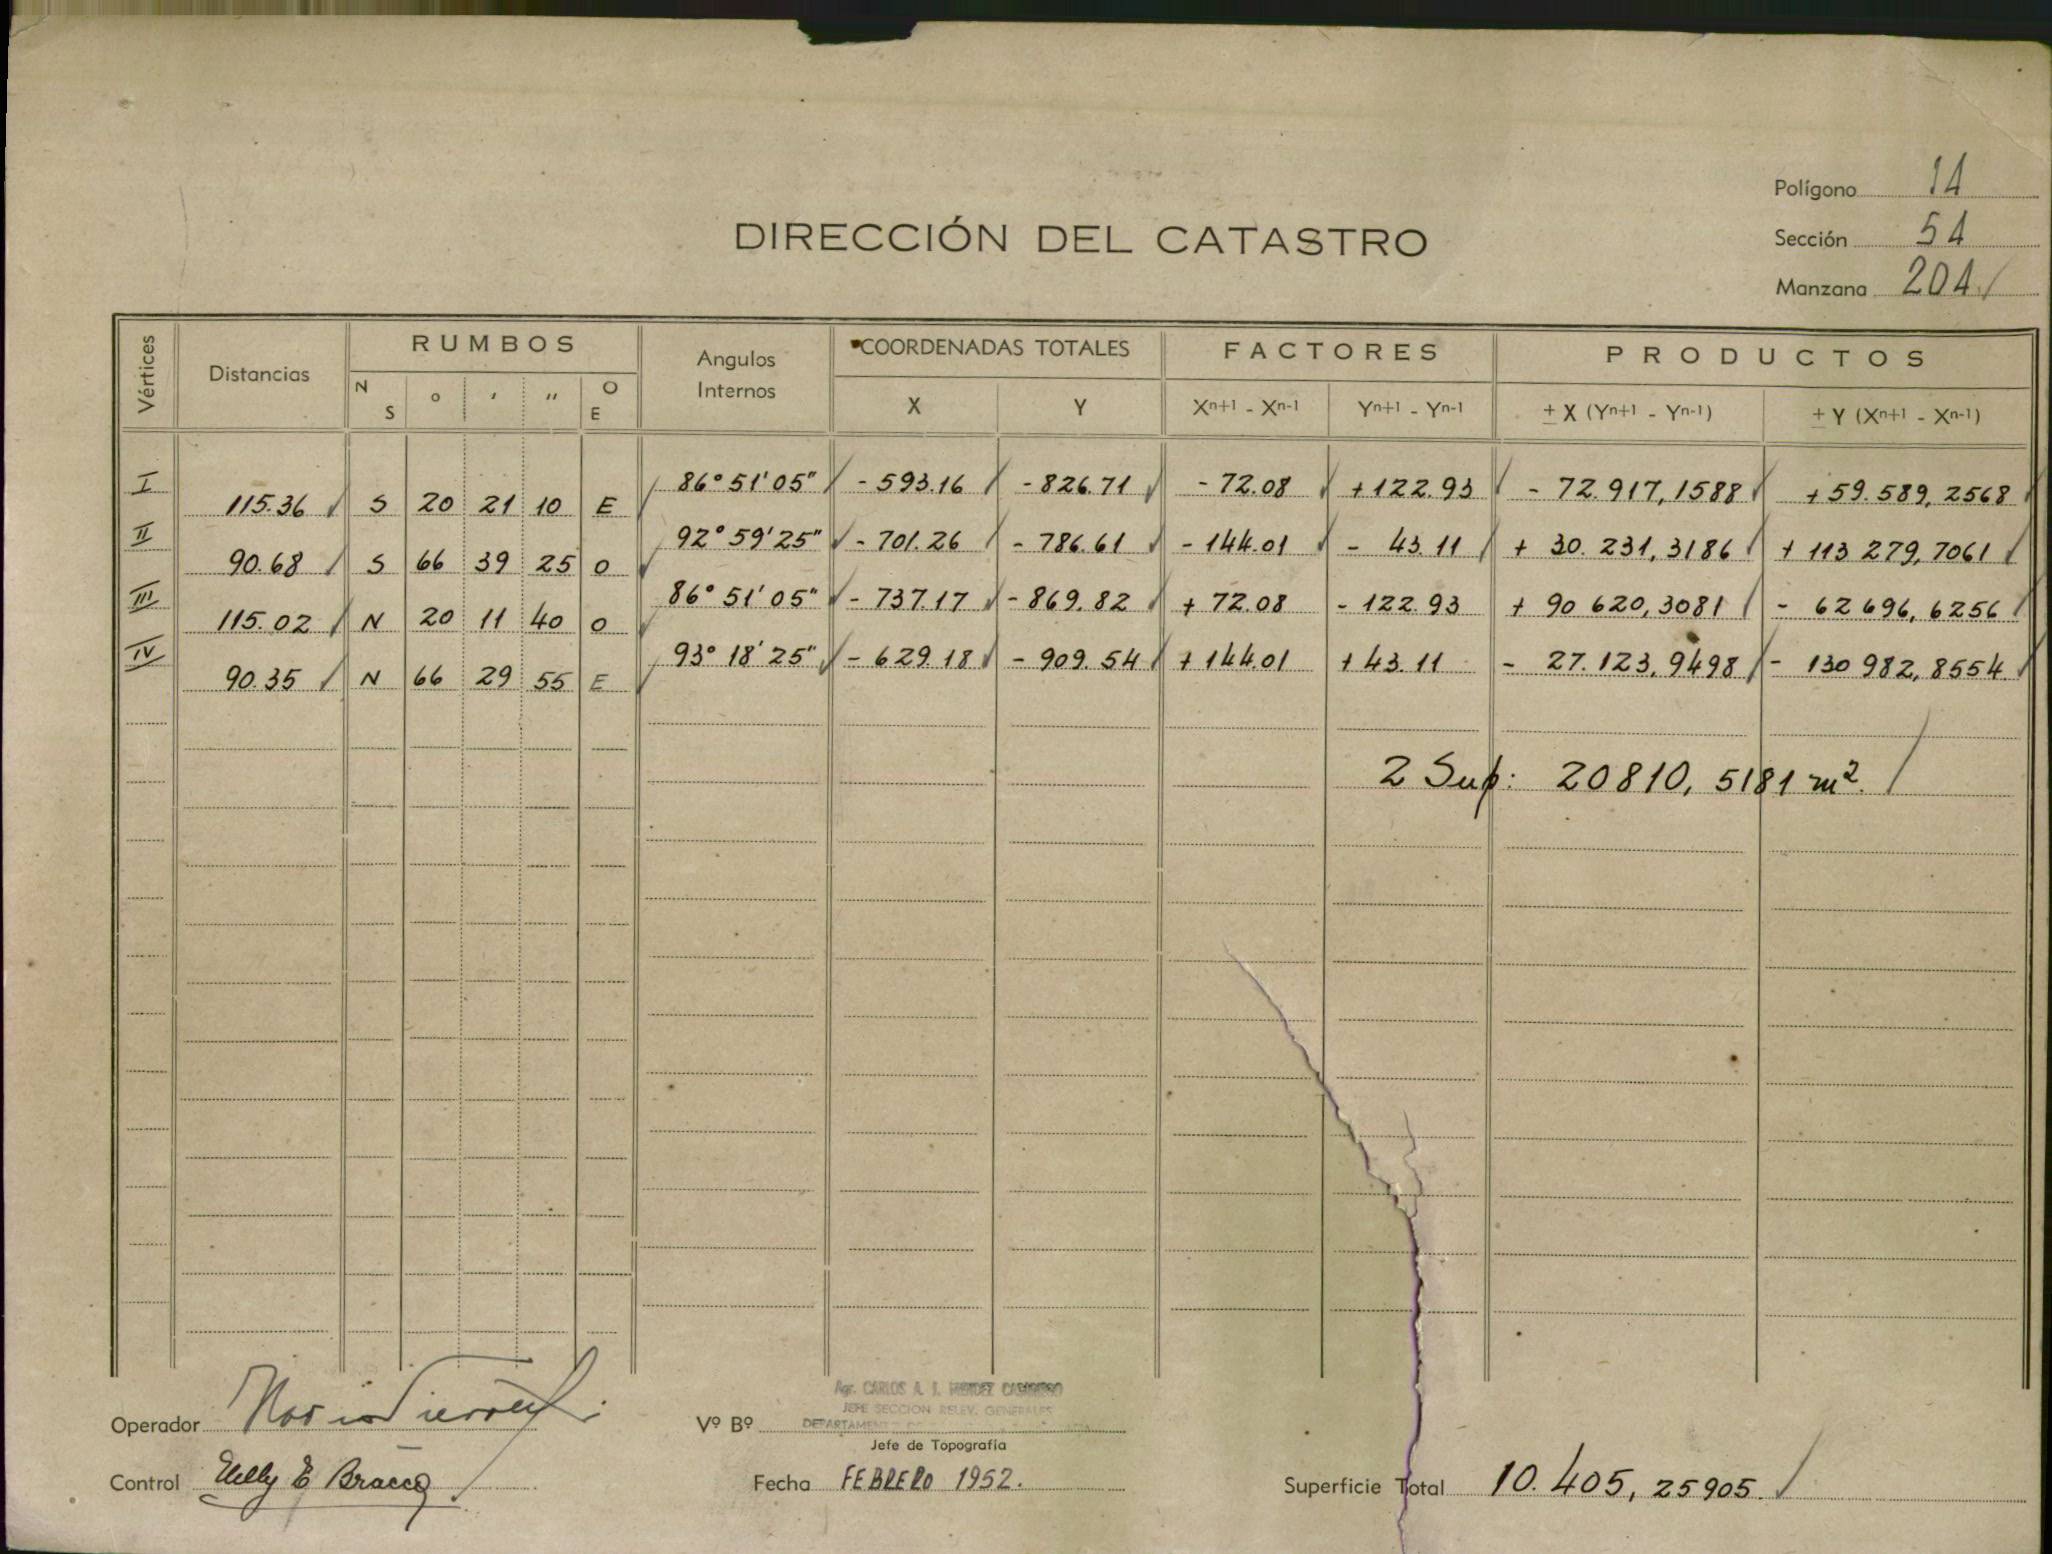 Polígono 14
Sección 54
Manzana 204
DIRECCIÓN DEL CATASTRO
Vértices Distancias RUMBOS Angulos Internos COORDENADAS TOTALES FACTORES PRODUCTOS
N S ° ' " O E X Y Xn+1 - Xn-1 Yn+1 - Yn-1 ± X (Yn+1 - Yn-1) ± Y (Xn+1 - Xn-1)
I 86° 51' 05" - 593.16 - 826.71 - 72.08 + 122.93 - 72.917,1588 + 59.589,2568
115.36 S 20 21 10 E
II 92° 59' 25" - 701.26 - 786.61 - 144.01 - 43.11 + 30.231,3186 + 113 279,7061
90.68 S 66 39 25 O
III 86° 51' 05" - 737.17 - 869.82 + 72.08 - 122.93 + 90 620,3081 - 62 696,6256
115.02 N 20 11 40 O
IV 93° 18' 25" - 629.18 - 909.54 + 144.01 + 43.11 - 27.123,9498 - 130 982,8554
90.35 N 66 29 55 E
2 Sup: 20810,5181 m².
Agr. CARLOS A. I. MENDEZ
JEFE SECCION RELEV. GENERALES
DEPARTAMENTO DE
Operador Vº Bº
Jefe de Topografía
Control Nelly E Bracco Fecha FEBRERO 1952. Superficie Total 10.405,25905